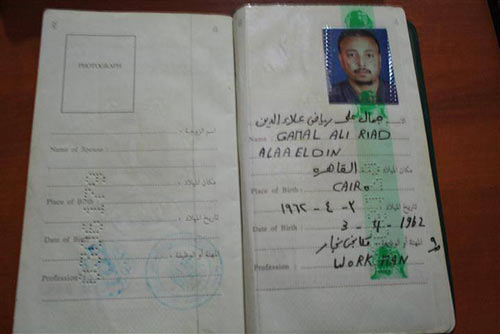 PHOTOGRAPH
اسم الزوجة :
Name of Spouse :
مكان الميلاد :
Place of Birth :
تاريخ الميلاد :
Date of Birth :
المهنة أو الوظيفة :
Profession :
جمال على رياض علاء الدين
Name : GAMAL ALI RIAD
ALAA ELDIN
القاهره مكان الميلاد :
Place of Birth : CAIRO
تاريخ الميلاد : ٣ - ٤ - ١٩٦٢
Date of Birth : 3 - 4 - 1962
المهنة أو الوظيفة :
Profession : WORK MAN